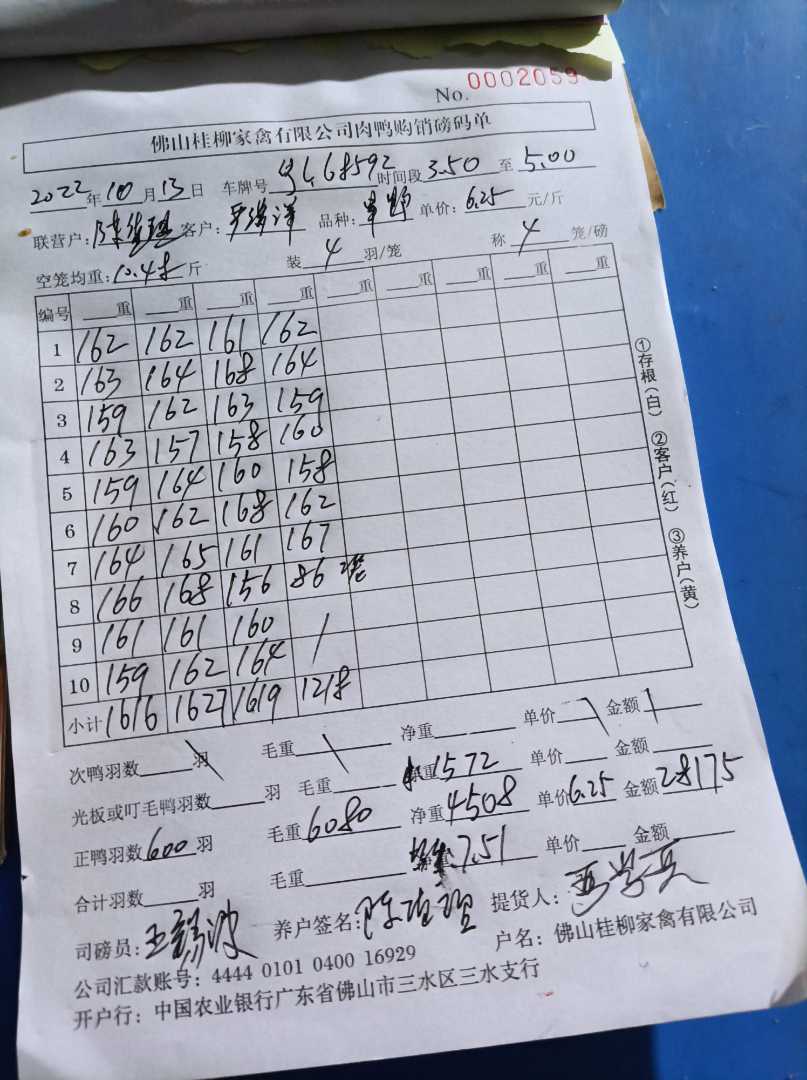 No. 0002059
佛山桂柳家禽有限公司肉鸭购销磅码单
2022年10月13日 车牌号 68592 时间段 3.50 至 5.00
联营户: 客户: 品种: 单价: 6.25 元/斤
空笼均重: 10.48 斤 装 4 羽/笼 称 4 笼/磅
编号 重 重 重 重 重 重 重 重 重
1 162 162 161 162
2 163 164 168 164
3 159 162 163 159
4 163 157 158 160
5 159 164 160 158
6 160 162 168 162
7 164 165 161 167
8 166 168 156 86
9 161 161 160 /
10 159 162 164
小计 1616 1627 1619 1218
次鸭羽数 \ 羽 毛重 \ 净重 单价 \ 金额 \
光板或叮毛鸭羽数 羽 毛重 重 1572 单价 金额
正鸭羽数 600 羽 毛重 6080 净重 4508 单价 6.25 金额 28175
合计羽数 羽 毛重 7.51 单价 金额
司磅员: 养户签名: 提货人:
公司汇款账号: 4444 0101 0400 16929 户名: 佛山桂柳家禽有限公司
开户行: 中国农业银行广东省佛山市三水区三水支行
①存根(白) ②客户(红) ③养户(黄)